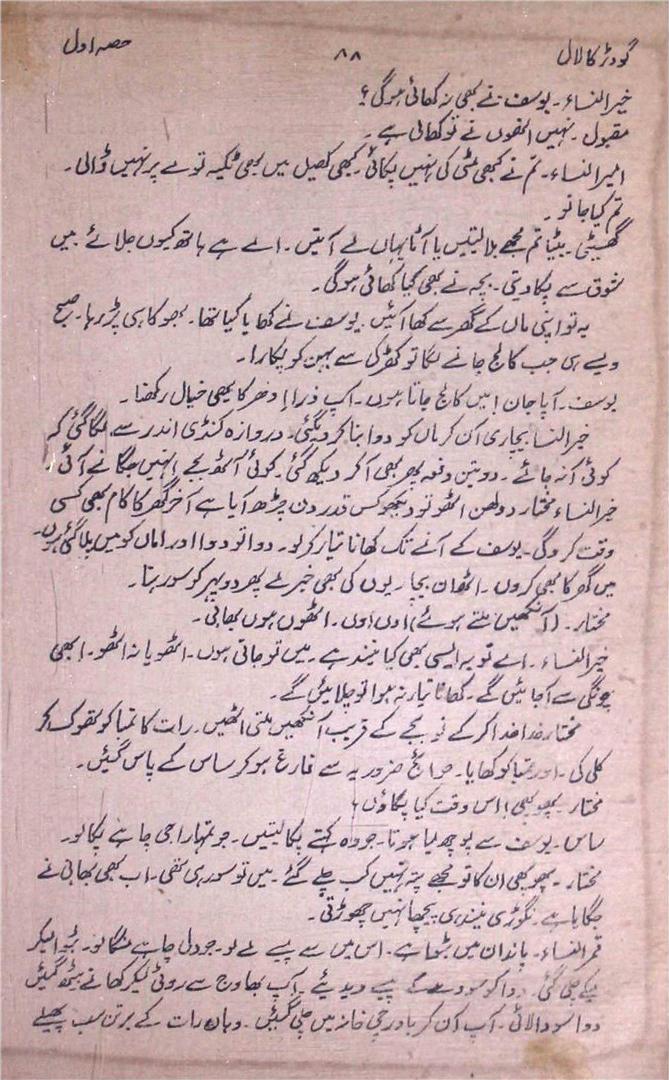 گودڑ کا لال ۸۸ حصہ اول
خیر النساء ۔ یوسف نے کبھی نہ کھائی ہوگی؟
مقبول ۔ نہیں انھوں نے تو کھائی ہے ۔
امیر النساء ۔ تم نے کبھی مٹی کی نہیں پکائی کبھی کھیل میں بھی ٹکیہ توے پر نہیں ڈالی ۔
تم کیا جانو ۔
گھسیٹی ۔ بیٹیا تم مجھے بلا لیتیں یا آٹا یہاں لے آتیں ۔ اے ہے ہاتھ کیوں جلائے میں
شوق سے پکا دیتی ۔ بچہ نے بھی کیا کھائی ہوگی ۔
یہ تو اپنی ماں کے گھر سے کھا آئیں یوسف نے کھایا کیا تھا ۔ بھوکا ہی پڑ رہا ۔ صبح
ویسے ہی جب کالج جانے لگا تو کھڑکی سے بہن کو پکارا ۔
یوسف ۔ آپا جان! میں کالج جاتا ہوں ۔ آپ ذرا ادھر کا بھی خیال رکھنا ۔
خیر النسا بیچاری آن کر ماں کو دوا بنا کر دیگئی ۔ دروازہ کنڈی اندر سے لگا گئی کہ
کوئی آ نہ جائے ۔ دو تین دفعہ پھر بھی آ کر دیکھ گئی ۔ کوئی آٹھ بجے انہیں جگانے آئی
خیر النساء مختار دولھن اٹھو تو دیکھو کس قدر دن چڑھ آیا ہے آخر گھر کا کام بھی کسی
وقت کرو گی ۔ یوسف کے آنے تک کھانا تیار کر لو ۔ دوا تو دوا اور اماں کو میں پلا گئی ہوں ۔
میں گھر کا بھی کروں ۔ اٹھ ان بیچاریوں کی بھی خبر لے پھر دوپہر کو سو رہنا ۔
مختار ۔ (آنکھیں ملتے ہوئے) اوں اوں ۔ اٹھوں ہوں بھابی ۔
خیر النساء ۔ اے تو یہ ایسی بھی کیا نیند ہے ۔ میں تو جاتی ہوں ۔ اٹھو یا نہ اٹھو ۔ ابھی
چونگی سے آجائیں گے ۔ کھانا تیار نہ ہوا تو چلائیں گے ۔
مختار خدا خدا کر کے نو بجے کے قریب آنکھیں ملتی اٹھیں ۔ رات کا تمباکو تھوک کر
کلی کی ۔ اور تمباکو کھایا ۔ حوائج ضروریہ سے فارغ ہو کر ساس کے پاس گئیں ۔
مختار پھوپھی! اس وقت کیا پکاؤں؟
ساس ۔ یوسف سے پوچھ لیا ہوتا ۔ جو وہ کہتے پکا لیتیں ۔ جو تمہارا جی چاہے پکا لو ۔
مختار ۔ پھوپھی ان کا تو مجھے پتہ نہیں کب چلے گئے ۔ میں تو سو رہی تھی ۔ اب بھی بھابی نے
جگایا ہے ۔ نگوڑی نیند ہی پیچھا نہیں چھوڑتی ۔
قمر النساء ۔ پاندان میں بٹوا ہے ۔ اس میں سے پیسے لے لو ۔ جو دل چاہے منگا لو ۔ بٹوا لیکر
چلی گئی ۔ ددا کو سودے کے پیسے دیدیئے ۔ آپ بھاوج سے روٹی لیکر کھانے بیٹھ گئیں
ددا سودا لائی ۔ آپ آن کر باورچی خانہ میں چلی گئیں ۔ وہاں رات کے برتن سب پھیلے